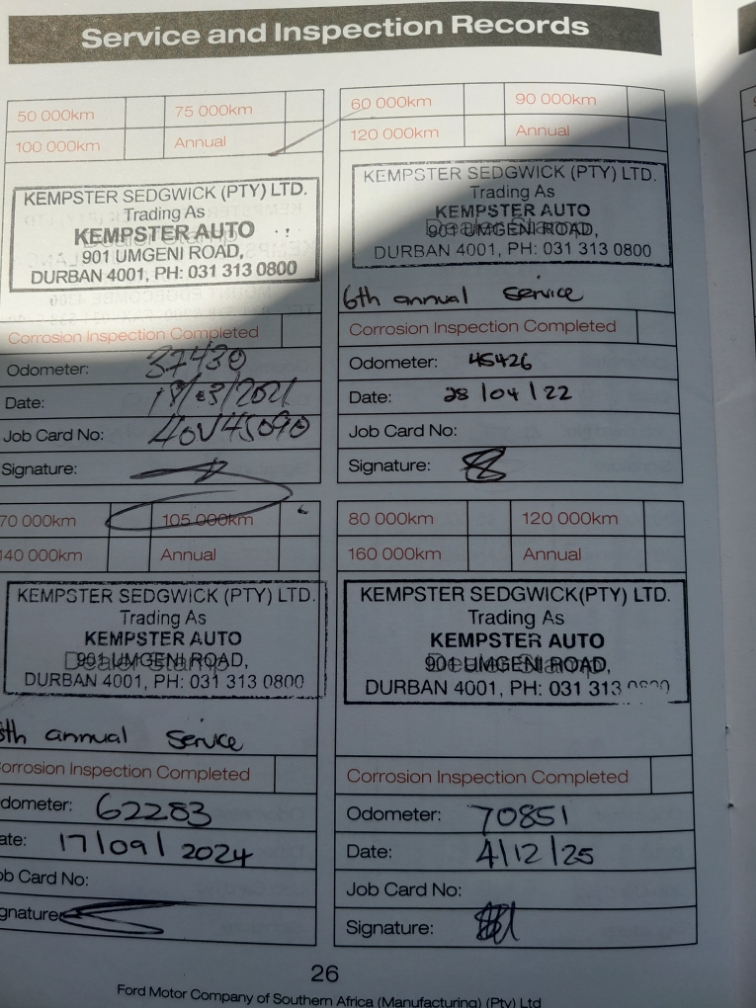 Service and Inspection Records
50 000km
75 000km
100 000km
Annual
KEMPSTER SEDGWICK (PTY) LTD.
Trading As
KEMPSTER AUTO
901 UMGENI ROAD,
DURBAN 4001, PH: 031 313 0800
Corrosion Inspection Completed
Odometer: 37430
Date: 18/03/2021
Job Card No:
Signature:
60 000km
90 000km
120 000km
Annual
KEMPSTER SEDGWICK (PTY) LTD.
Trading As
KEMPSTER AUTO
901 UMGENI ROAD,
DURBAN 4001, PH: 031 313 0800
6th annual service
Corrosion Inspection Completed
Odometer: 45426
Date: 28/04/22
Job Card No:
Signature:
70 000km
105 000km
140 000km
Annual
KEMPSTER SEDGWICK (PTY) LTD.
Trading As
KEMPSTER AUTO
901 UMGENI ROAD,
Dealer Stamp
DURBAN 4001, PH: 031 313 0800
annual service
Corrosion Inspection Completed
Odometer: 62283
Date: 17/09/2024
Job Card No:
Signature
80 000km
120 000km
160 000km
Annual
KEMPSTER SEDGWICK (PTY) LTD.
Trading As
KEMPSTER AUTO
901 UMGENI ROAD,
DURBAN 4001, PH: 031 313 0800
Corrosion Inspection Completed
Odometer: 70851
Date: 4/12/25
Job Card No:
Signature:
26
Ford Motor Company of Southern Africa (Manufacturing) (Pty) Ltd